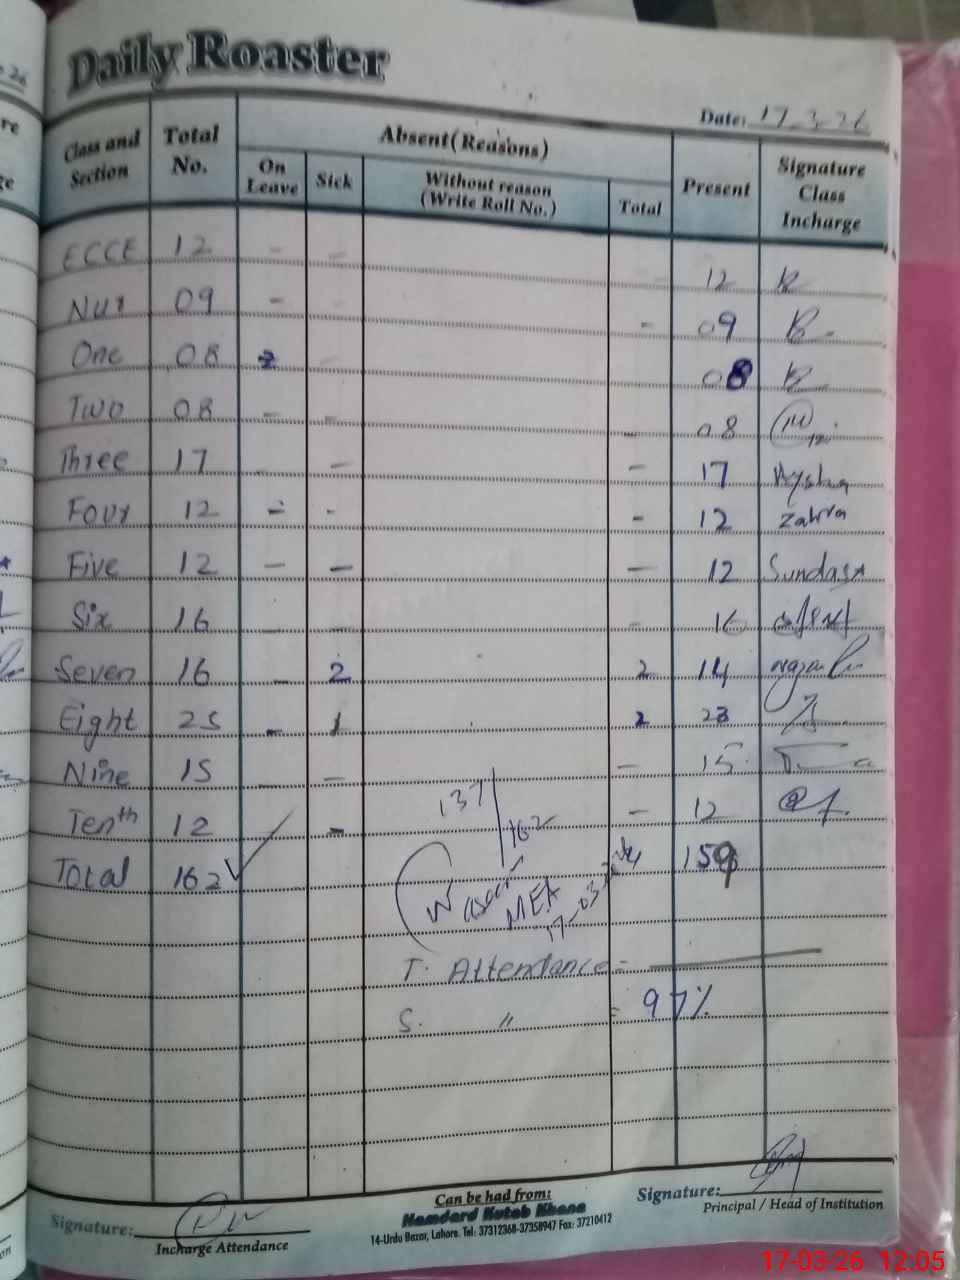 Daily Roaster
Date: 17-3-26
Class and Section Total No. Absent(Reasons) Present Signature Class Incharge
On Leave Sick Without reason (Write Roll No.) Total
ECCE 12 - - 12
Nur 09 - - 09
One 08 - 08
Two 08 - - - 08
Three 17 - - 17 Aysha
Four 12 - - - 12 Zahra
Five 12 - - - 12 Sundas
Six 16 - - - 16
Seven 16 - 2 2 14
Eight 25 - 1 2 23
Nine 15 - - - 15
Tenth 12 - - 12
137/162
Total 162 159
MEA
17-03
T. Attendance =
S. " = 97%
Signature:
Incharge Attendance
Can be had from:
Hamdard Kutab Khana
14-Urdu Bazar, Lahore. Tel: 37312368-37358947 Fax: 37210412
Signature:
Principal / Head of Institution
17-03-26 12:05